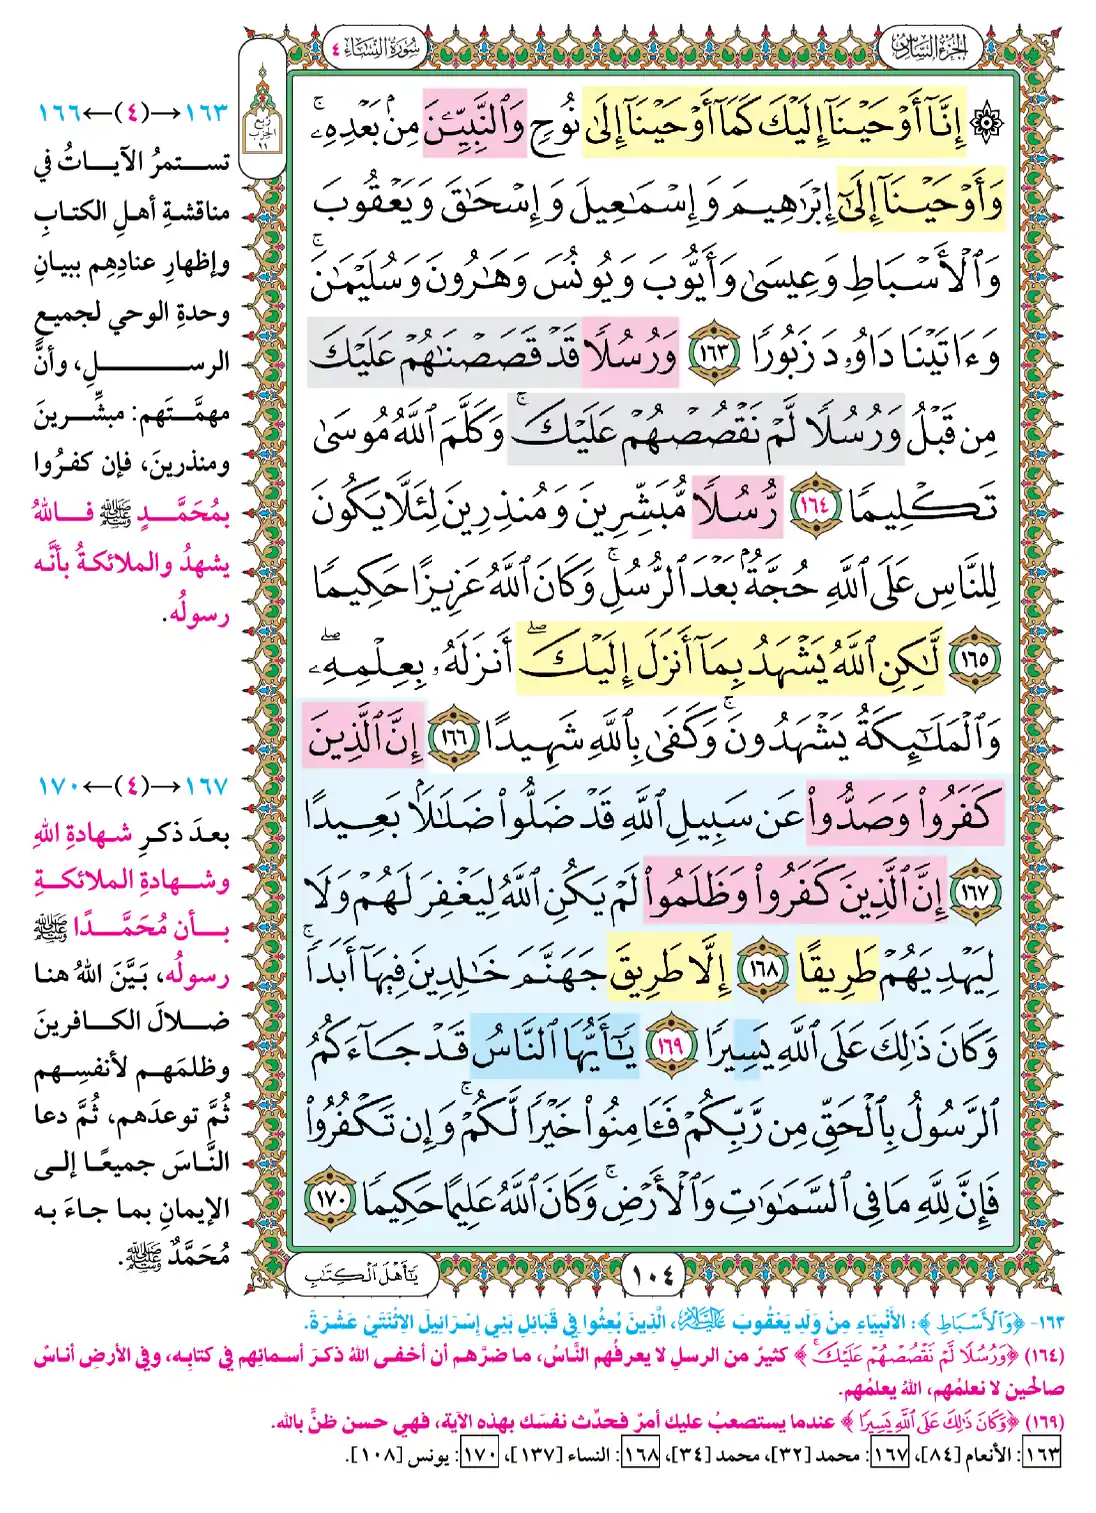 الجزء السادس
سورة النساء ٤
ربع
الحزب
١١
۞ إِنَّآ أَوْحَيْنَآ إِلَيْكَ كَمَآ أَوْحَيْنَآ إِلَىٰ نُوحٍ وَٱلنَّبِيِّـۧنَ مِنۢ بَعْدِهِۦ ۚ
وَأَوْحَيْنَآ إِلَىٰٓ إِبْرَٰهِيمَ وَإِسْمَـٰعِيلَ وَإِسْحَـٰقَ وَيَعْقُوبَ
وَٱلْأَسْبَاطِ وَعِيسَىٰ وَأَيُّوبَ وَيُونُسَ وَهَـٰرُونَ وَسُلَيْمَـٰنَ ۚ
وَءَاتَيْنَا دَاوُۥدَ زَبُورًا ١٦٣ وَرُسُلًا قَدْ قَصَصْنَـٰهُمْ عَلَيْكَ
مِن قَبْلُ وَرُسُلًا لَّمْ نَقْصُصْهُمْ عَلَيْكَ ۚ وَكَلَّمَ ٱللَّهُ مُوسَىٰ
تَكْلِيمًا ١٦٤ رُّسُلًا مُّبَشِّرِينَ وَمُنذِرِينَ لِئَلَّا يَكُونَ
لِلنَّاسِ عَلَى ٱللَّهِ حُجَّةٌۢ بَعْدَ ٱلرُّسُلِ ۚ وَكَانَ ٱللَّهُ عَزِيزًا حَكِيمًا
١٦٥ لَّـٰكِنِ ٱللَّهُ يَشْهَدُ بِمَآ أَنزَلَ إِلَيْكَ ۖ أَنزَلَهُۥ بِعِلْمِهِۦ ۖ
وَٱلْمَلَـٰٓئِكَةُ يَشْهَدُونَ ۚ وَكَفَىٰ بِٱللَّهِ شَهِيدًا ١٦٦ إِنَّ ٱلَّذِينَ
كَفَرُوا۟ وَصَدُّوا۟ عَن سَبِيلِ ٱللَّهِ قَدْ ضَلُّوا۟ ضَلَـٰلًۢا بَعِيدًا
١٦٧ إِنَّ ٱلَّذِينَ كَفَرُوا۟ وَظَلَمُوا۟ لَمْ يَكُنِ ٱللَّهُ لِيَغْفِرَ لَهُمْ وَلَا
لِيَهْدِيَهُمْ طَرِيقًا ١٦٨ إِلَّا طَرِيقَ جَهَنَّمَ خَـٰلِدِينَ فِيهَآ أَبَدًا ۚ
وَكَانَ ذَٰلِكَ عَلَى ٱللَّهِ يَسِيرًا ١٦٩ يَـٰٓأَيُّهَا ٱلنَّاسُ قَدْ جَآءَكُمُ
ٱلرَّسُولُ بِٱلْحَقِّ مِن رَّبِّكُمْ فَـَٔامِنُوا۟ خَيْرًا لَّكُمْ ۚ وَإِن تَكْفُرُوا۟
فَإِنَّ لِلَّهِ مَا فِى ٱلسَّمَـٰوَٰتِ وَٱلْأَرْضِ ۚ وَكَانَ ٱللَّهُ عَلِيمًا حَكِيمًا ١٧٠
١٠٤
يَـٰٓأَهْلَ ٱلْكِتَـٰبِ
١٦٣→(٤)←١٦٦
تستمرُ الآياتُ في
مناقشةِ أهلِ الكتابِ
وإظهارِ عنادِهِم ببيانِ
وحدةِ الوحي لجميعِ
الرسلِ، وأنَّ
مهمَّتَهم: مبشِّرينَ
ومنذرينَ، فإن كفرُوا
بمُحَمَّدٍ ﷺ فاللهُ
يشهدُ والملائكةُ بأنَّه
رسولُه.
١٦٧→(٤)←١٧٠
بعدَ ذكرِ شهادةِ اللهِ
وشهادةِ الملائكةِ
بأن مُحَمَّدًا ﷺ
رسولُه، بَيَّنَ اللهُ هنا
ضلالَ الكافرينَ
وظلمَهم لأنفسِهم
ثُمَّ توعدَهم، ثُمَّ دعا
النَّاسَ جميعًا إلى
الإيمانِ بما جاءَ به
مُحَمَّدٌ ﷺ.
١٦٣- ﴿وَٱلْأَسْبَاطِ﴾: الأَنْبِيَاءِ مِنْ وَلَدِ يَعْقُوبَ عَلَيْهِ السَّلَامُ، الَّذِينَ بُعِثُوا فِي قَبَائِلِ بَنِي إِسْرَائِيلَ الِاثْنَتَيْ عَشْرَةَ.
(١٦٤) ﴿وَرُسُلًا لَّمْ نَقْصُصْهُمْ عَلَيْكَ ۚ﴾ كثيرٌ من الرسلِ لا يعرفُهم النَّاسُ، ما ضرَّهم أن أخفى اللهُ ذكرَ أسمائِهم في كتابِه، وفي الأرضِ أناسٌ
صالحين لا نعلمُهم، اللهُ يعلمُهم.
(١٦٩) ﴿وَكَانَ ذَٰلِكَ عَلَى ٱللَّهِ يَسِيرًا﴾ عندما يستصعبُ عليك أمرٌ فحدِّث نفسَك بهذه الآية، فهي حسن ظنٍّ بالله.
١٦٣: الأنعام [٨٤]، ١٦٧: محمد [٣٢]، محمد [٣٤]، ١٦٨: النساء [١٣٧]، ١٧٠: يونس [١٠٨].